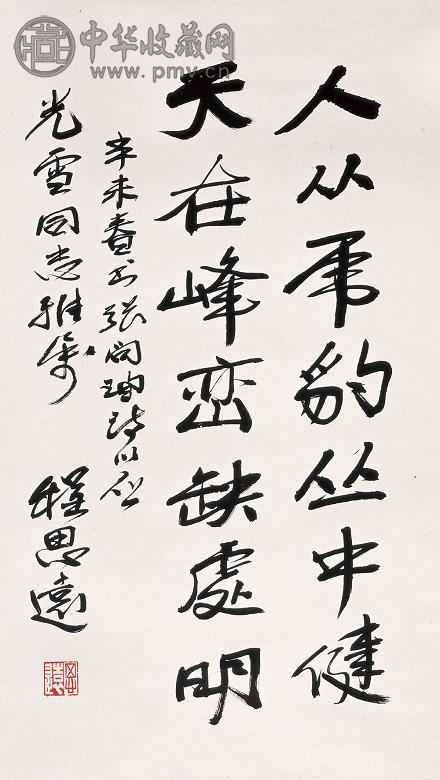 中华收藏网
www.pmy.cn
人从虎豹丛中健
天在峰峦缺處明
辛未春书张问陶诗以应
光雪同志雅属
程思遠